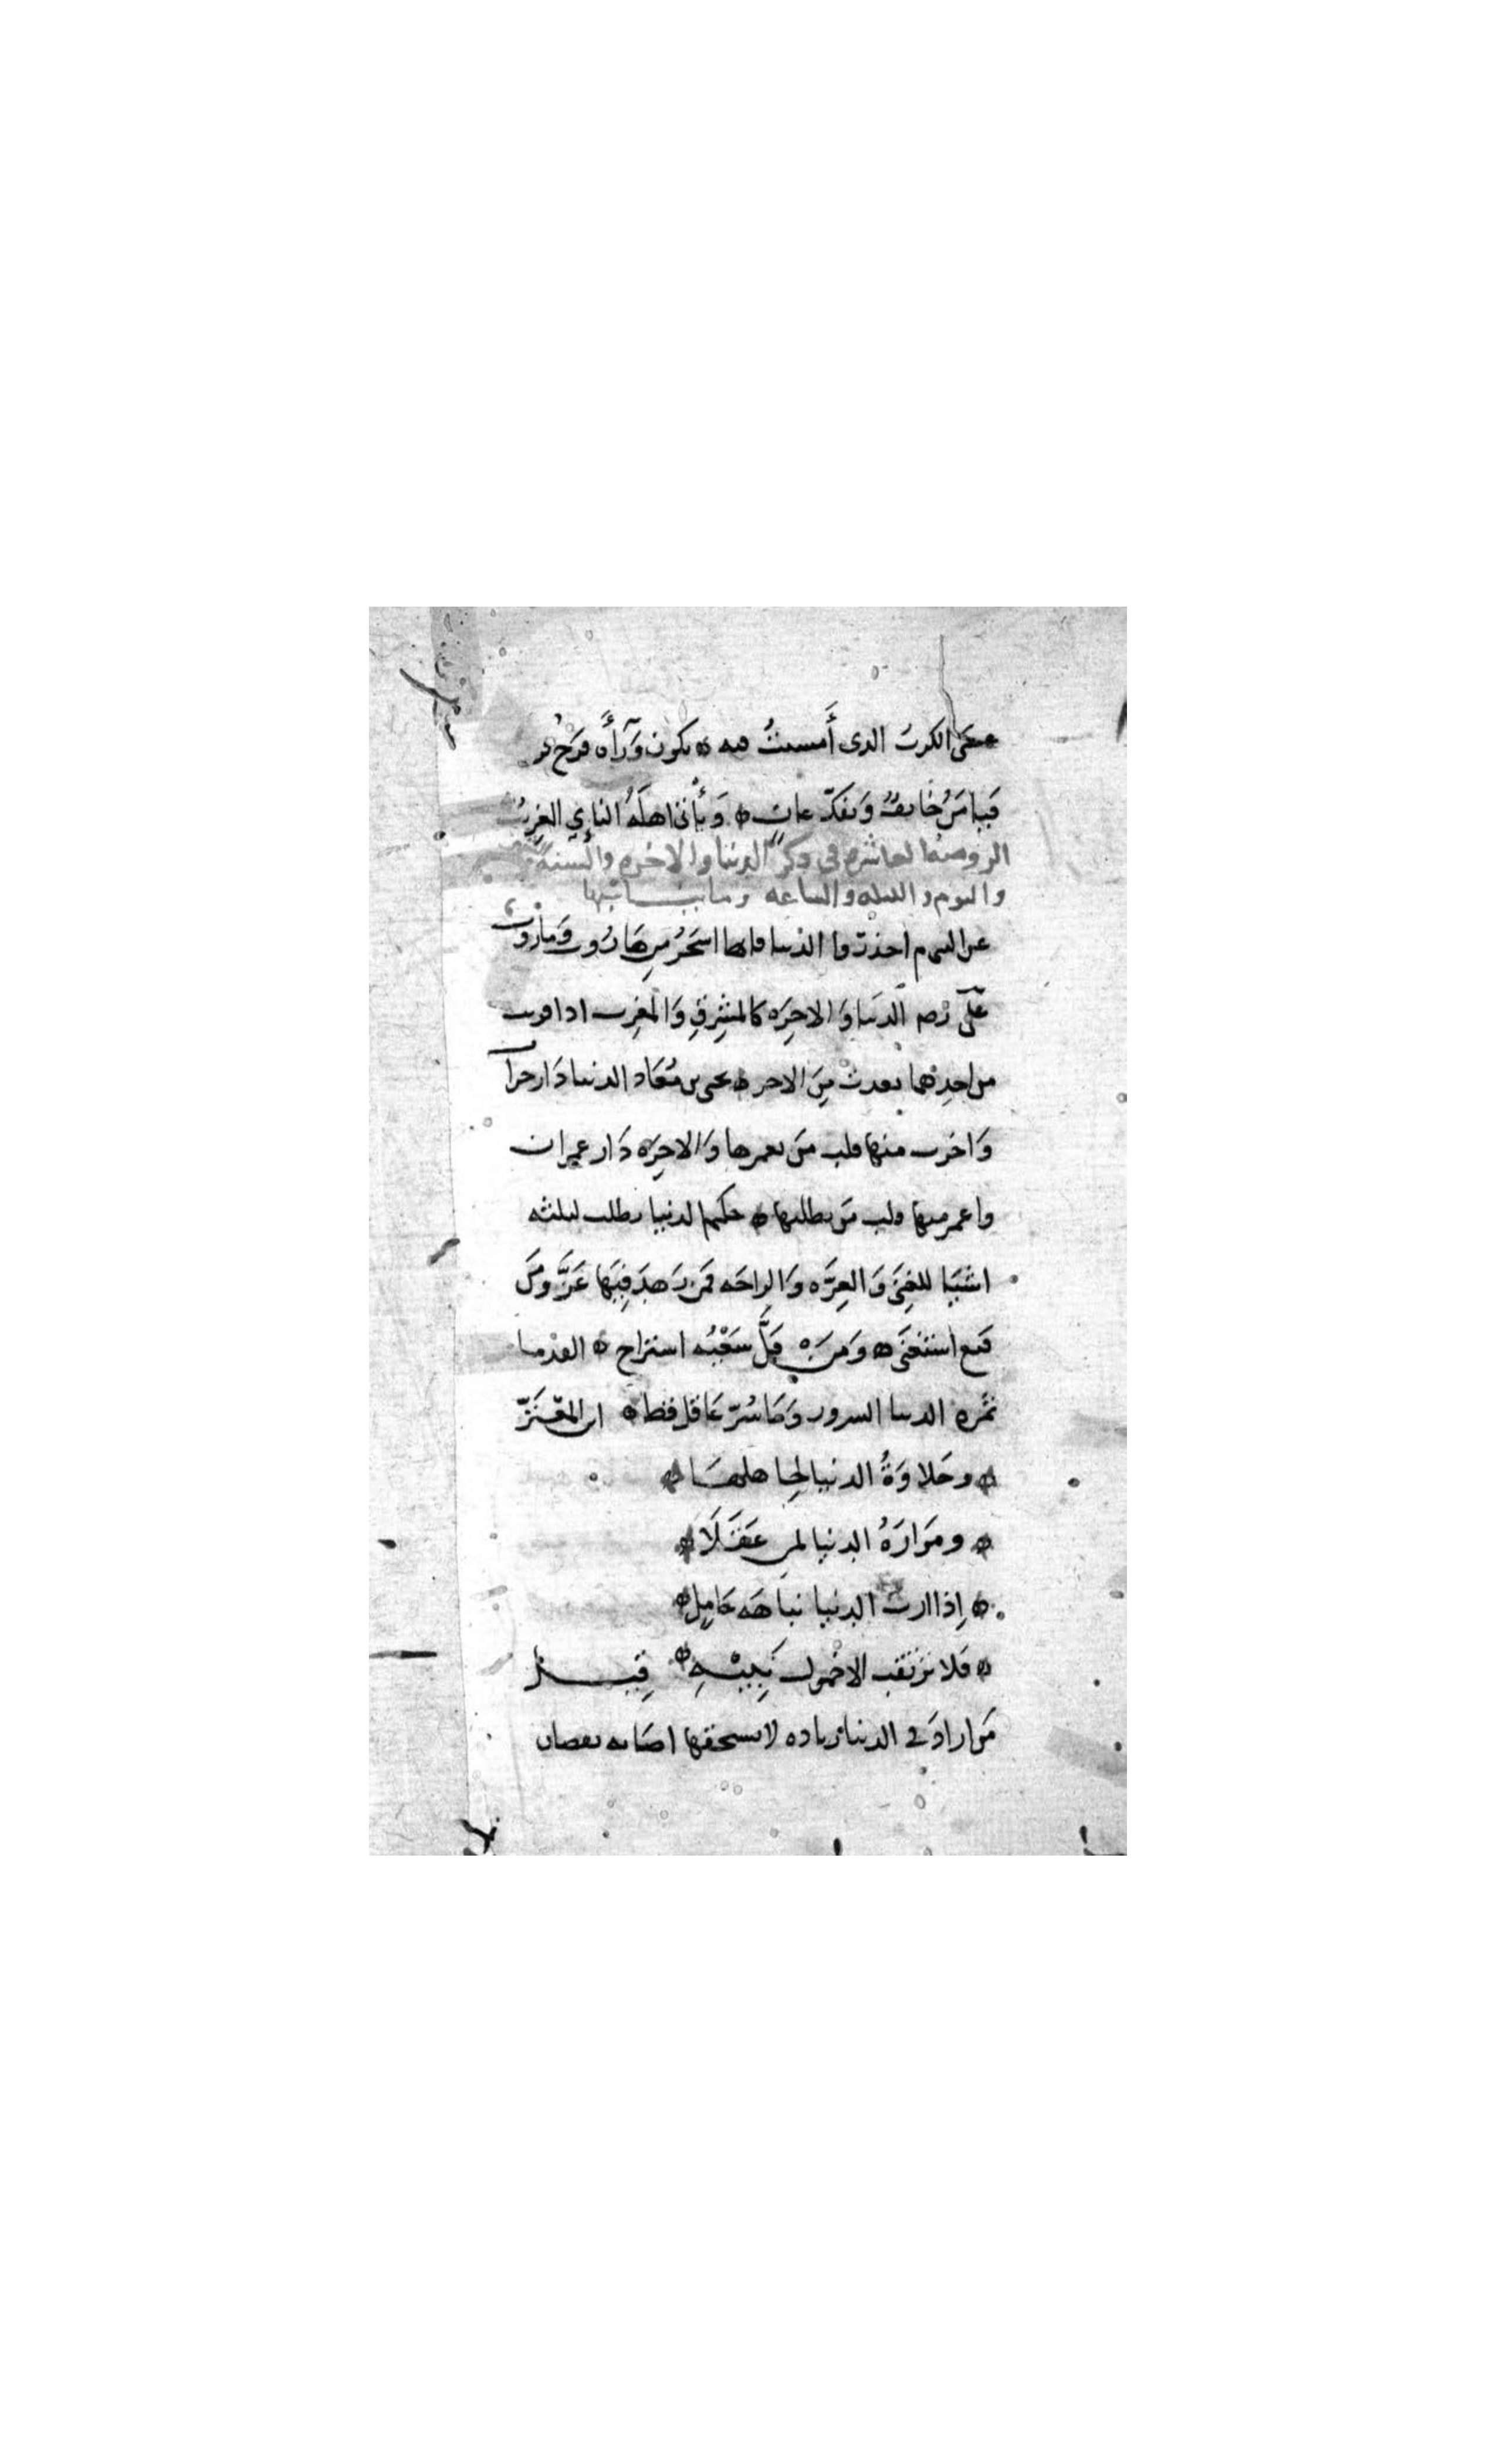 عسَى الكربُ الدى أَمسيتُ فيه ه يكون وَرآأَه فرَجٌ قر
فَيامَنُ خَايفٌ وَيفَكّ عانٍ ه وَيأتي اهلَهُ النايِي الغرِيبُ
الروضه العاشره في ذكر الدنيا والاخره والسنه
واليوم والليله والساعه وما يناسبها
عن النبي م احذروا الدنيا فانها اسحَرُ من هَارُوت وَمارُوت
علي رضه الدنيا وَالاخِرَه كالمشرِقِ وَالمغرِب ادا قربت
من احدِهما بعدتَ مِنَ الاخر ه يحيى بن مُعَاد الدنيا دَار خراب
وَاخرب منها قلب مَن يعمرها وَالاخِرَه دَار عمران
واعمر منها قلب مَن يطلبها ه حكيم الدنيا يطلب لثلثه
اشيَا للغِنَى وَالعِزَّه وَالراحَه فمَن زَهِدَ فِيَها عَزَّ ومَن
قَنع استغنَى ه وَمَن قَلَّ سَعْيُه استراح ه القدما
ثمَره الدنيا السرور وَمَا سُرّ عَاقل قط ه ابن المعْتَزّ
ه وحَلاوَةُ الدنيا لجاهلهَا ه
ه ومَرارَةُ الدنيا لمن عَقَلَا ه
ه اِذا ارت الدنيا نباهَه خَامِلٍ ه
ه فَلا ترتقب الاخمول نَبِيْهِ ه قِيْل
مَن ارادَ في الدنيا زياده لا يستحقها اصَابه نقصان